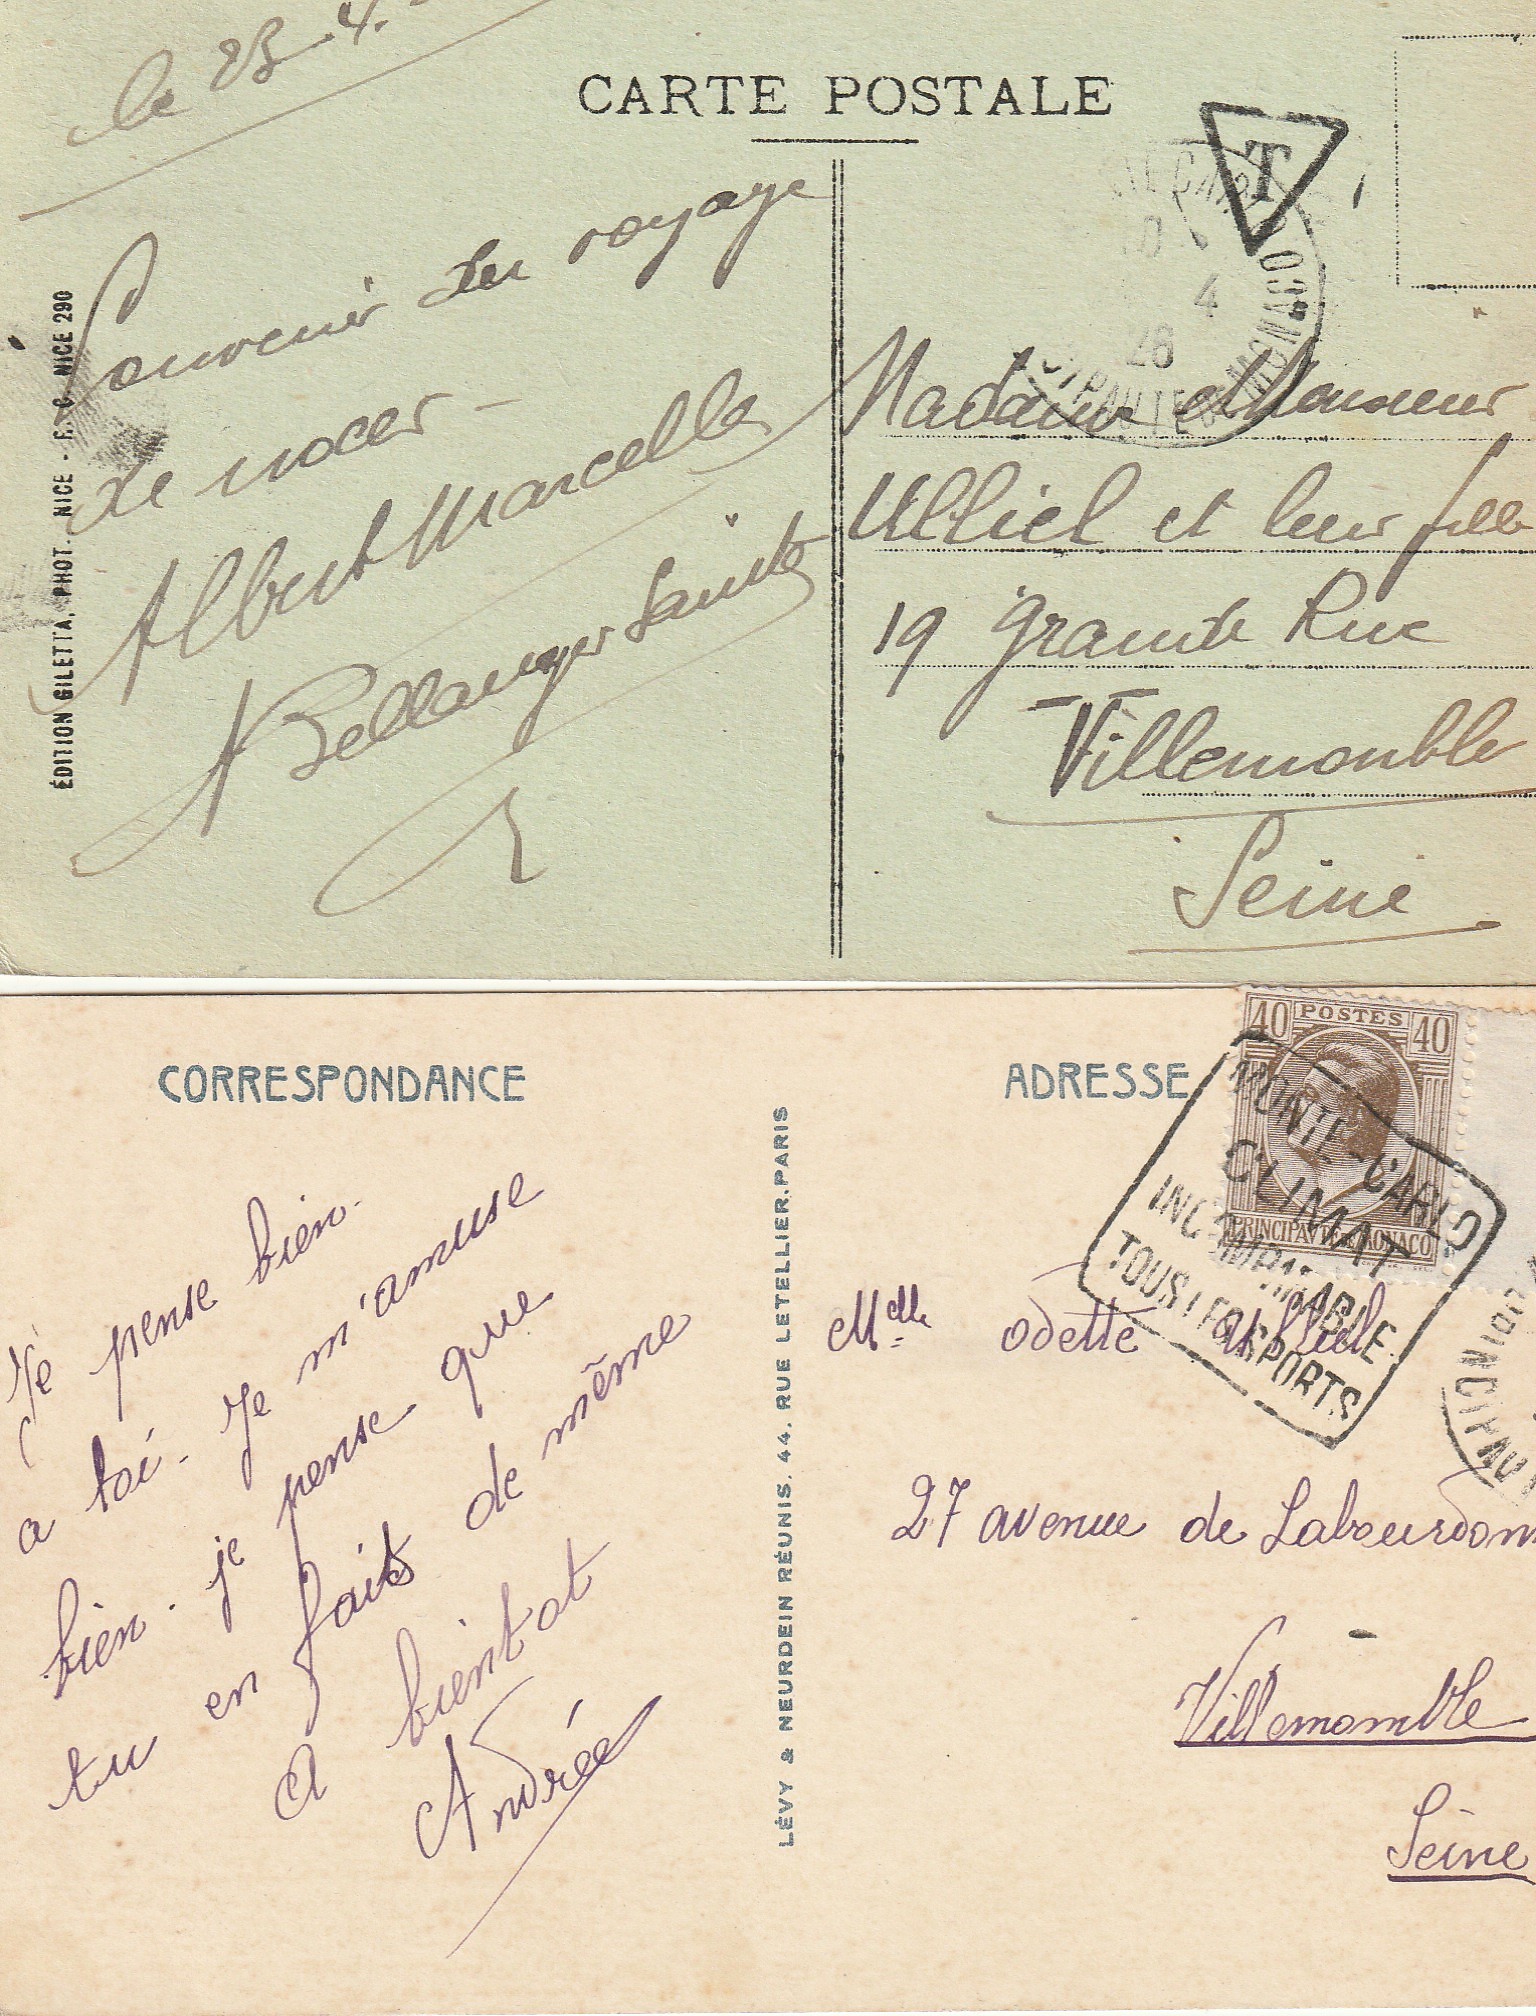 le 23.4.
CARTE POSTALE
T
MONACO
4
28
Souvenir du voyage
de noces -
Albert Marcelle
Bellanger
ÉDITION GILETTA, PHOT. NICE - F. C. NICE 290
Madame et Monsieur
Ulliel et leur fille
19 Grande Rue
Villemomble
Seine
CORRESPONDANCE
ADRESSE
40 POSTES 40
PRINCIPAUTÉ DE MONACO
MONTE-CARLO
CLIMAT
INCOMPARABLE
TOUS LES SPORTS
Je pense bien
a toi. Je m'amuse
bien. je pense que
tu en faits de même
A bientot
Andrée
LÉVY & NEURDEIN RÉUNIS. 44, RUE LETELLIER. PARIS
Melle Odette Ulliel
27 avenue de Labourdonn
Villemomble
Seine